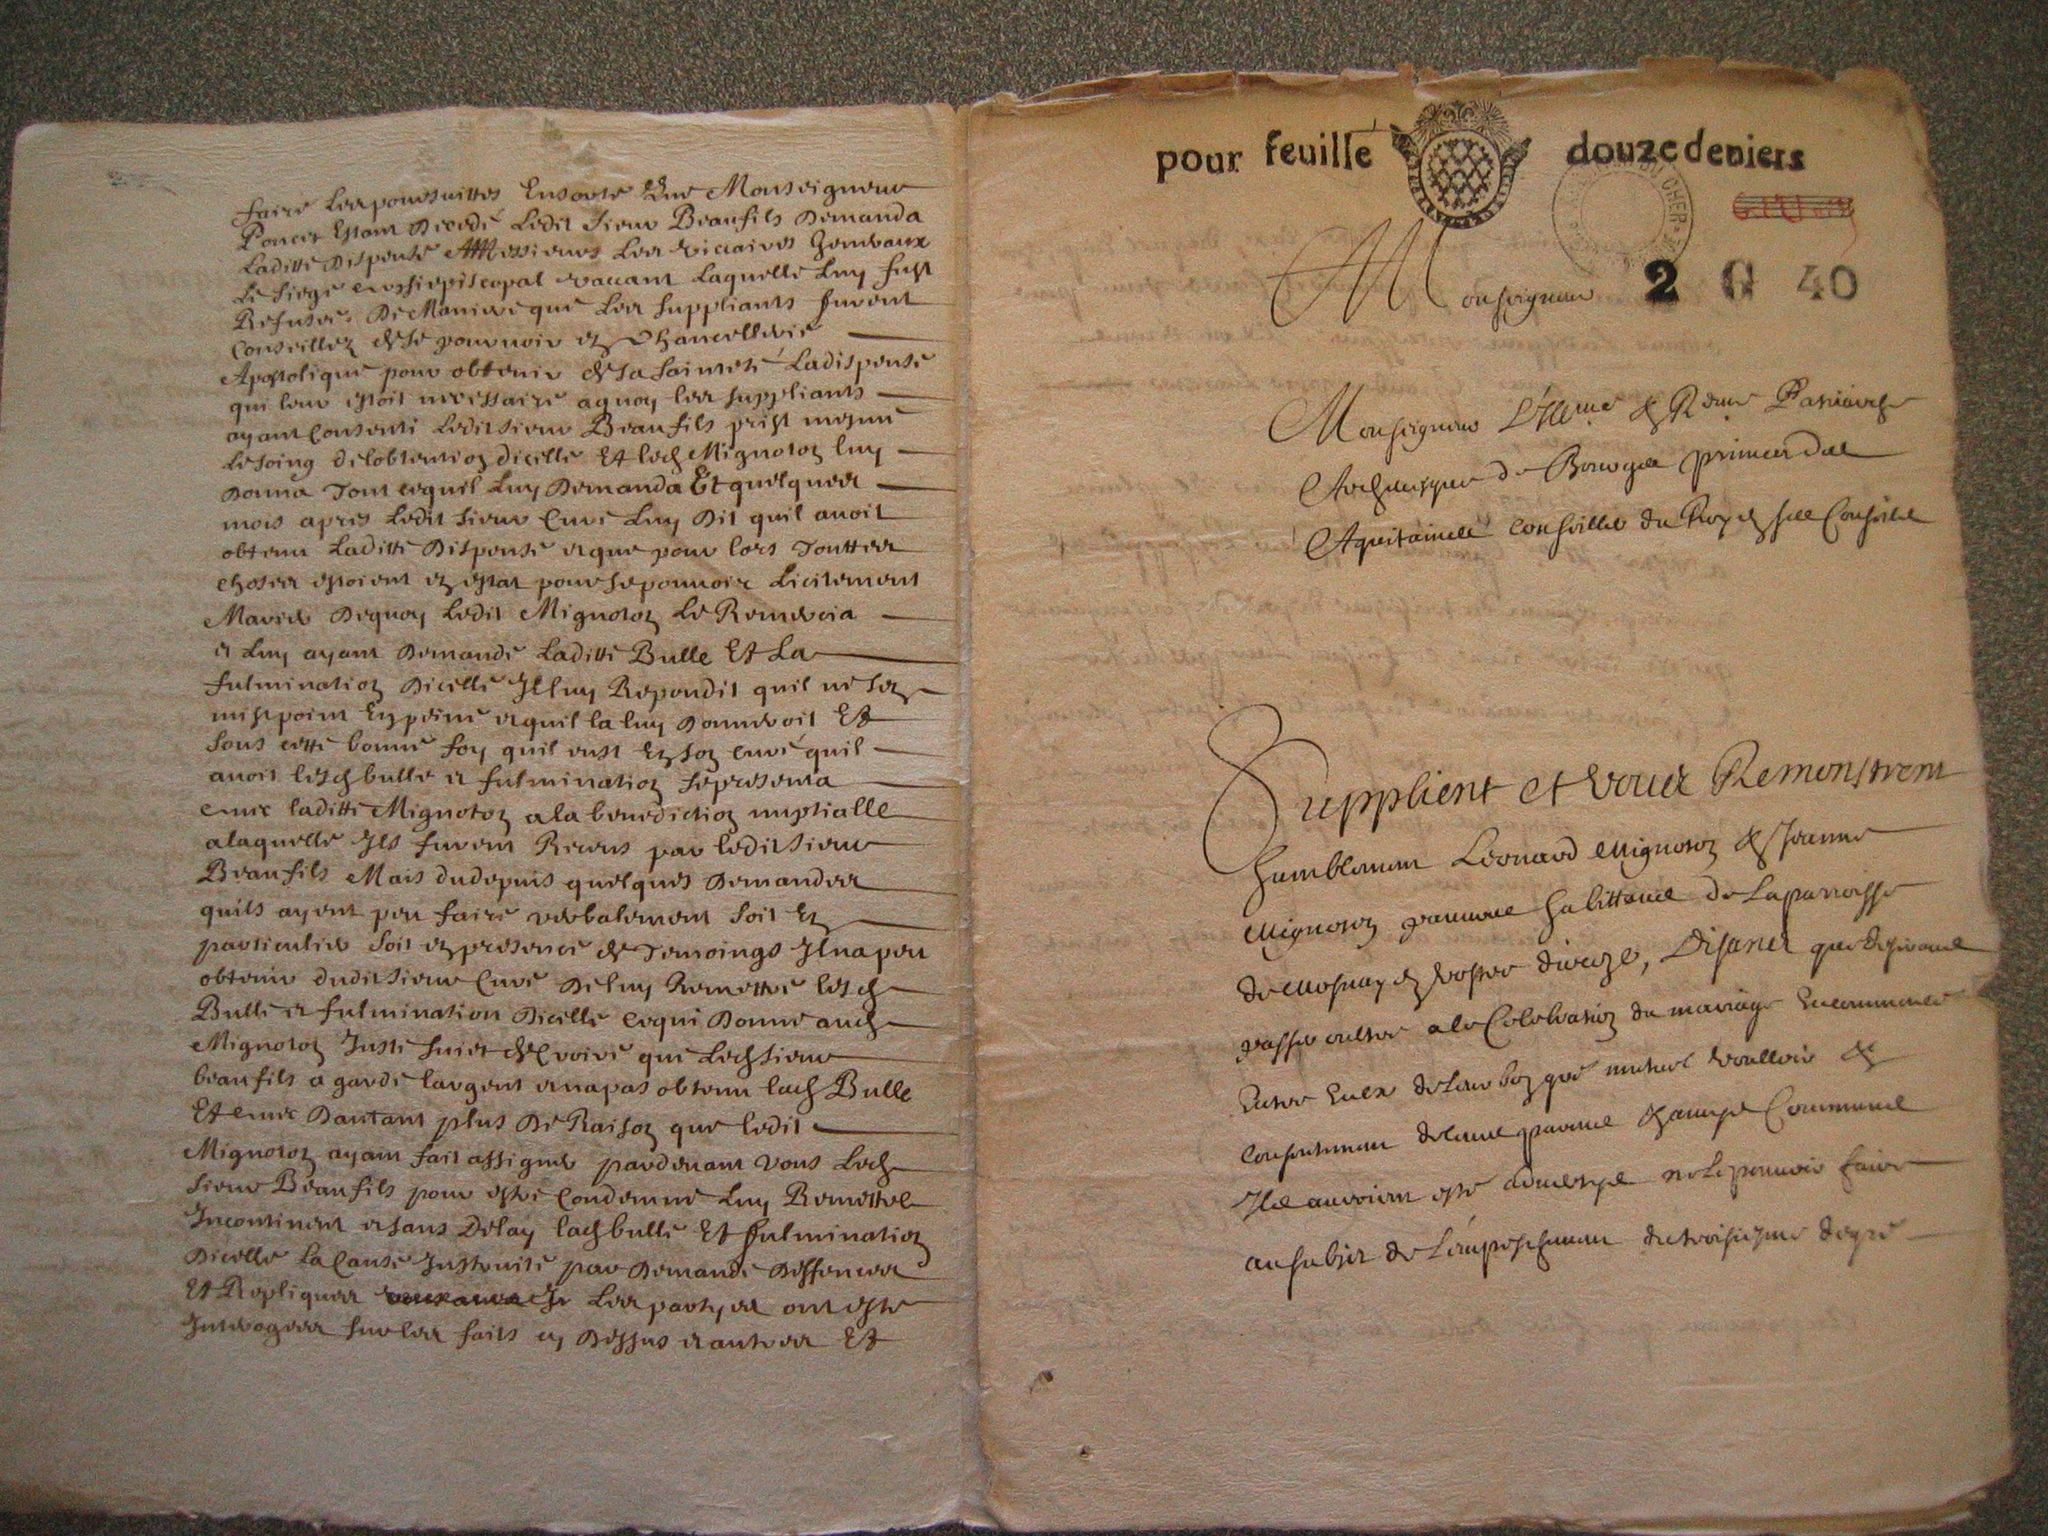 faire les poursuittes Ensorte que Monseigneur
Poncet Estant decedé Ledit sieur Beaufils demanda
Laditte dispense A Messieurs Les viccaires Generaux
Le siege archiepiscopal vaccant Laquelle Luy fust
Refusée. De Maniere que Les suppliants furent
Conseillez de se pourvoir en Chancellerie
Apostolique pour obtenir de sa sainteté Ladispense
qui leur estoit necessaire aquoy les suppliants
ayant Consenti Ledit sieur Beaufils prist mesme
Lesoing delobtention dicelle Et led Mignoton luy
donna Tout cequil Luy demanda Et quelques
mois apres Ledit sieur Curé Luy dit quil avoit
obtenu Laditte dispense et que pour lors Touttes
choses estoient en estat pour se pouvoir Licitement
Marier dequoy Ledit Mignoton Le Remercia
et Luy ayant demandé Laditte Bulle Et La
fulmination dicelle Il luy Repondit quil ne sen
mist point En peine et quil la luy donneroit Et
sous cette bonne foy quil eust En son curé quil
avoit lesd bulle et fulmination se presenta
avec laditte Mignoton ala benediction nuptialle
alaquelle Ils furent Receus par ledit sieur
Beaufils Mais dudepuis quelques demandes
quils ayent peu faire verbalement soit En
particulier soit en presence de Temoings Il na peu
obtenir dudit sieur Curé de luy Remettre lesd
Bulle et fulmination dicelle cequi donne aud
Mignoton Juste suiet de Croire que Led sieur
beaufils a gardé largent et na pas obtenu lad Bulle
Et avec dautant plus de Raison que ledit
Mignoton ayant fait assigner pardevant vous Led
sieur Beaufils pour estre Condemné Luy Remettre
Incontinent et sans Delay lad bulle Et fulmination
dicelle la Cause Instruite par demande deffences
Et Repliques Les partyes ont esté
Interogees sur les faits cy dessus et autres Et
pour feuille douze deniers
DU CHER
Monseigneur 2 G 40
Monseigneur L'Illme & Rme Patriarche
Archevesque de Bourges primat des
Aquitaines Conseiller du Roy en ses Conseils
Supplient et vous Remonstrent
humblement Leonard Mignoton & Jeanne
Mignoton pauvres habittans de La parroisse
de Mosnay en vostre dioceze, Disants que desirants
passer oultre a la Celebration du mariage Encommancé
Entre Eulx de leur bon gré mutuel voulloir &
Consentement de leurs parans & amys Communs
Ils auroient esté advertys ne le pouvoir faire
au subjet de L'empeschement du troisiesme degré